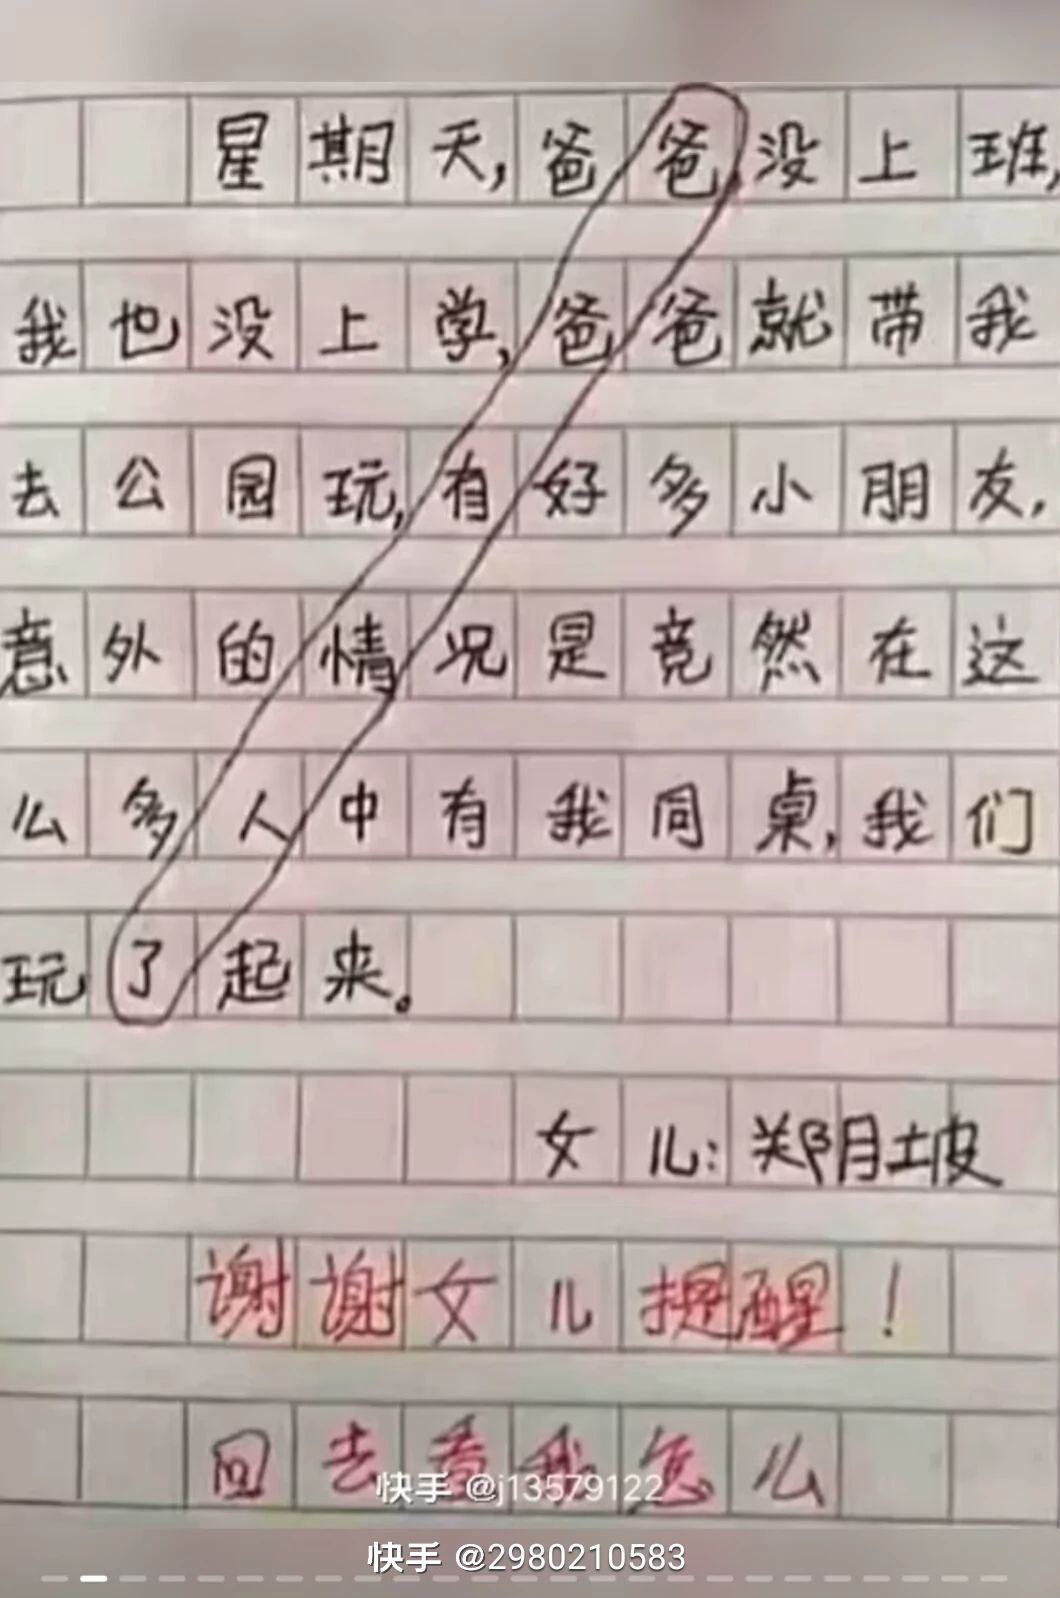 星期天,爸爸没上班,
我也没上学,爸爸就带我
去公园玩,有好多小朋友,
意外的情况是竟然在这
么多人中有我同桌,我们
玩了起来。
女儿:郑月坡
谢谢女儿提醒!
回去看我怎么
快手 @j13579122
快手 @2980210583